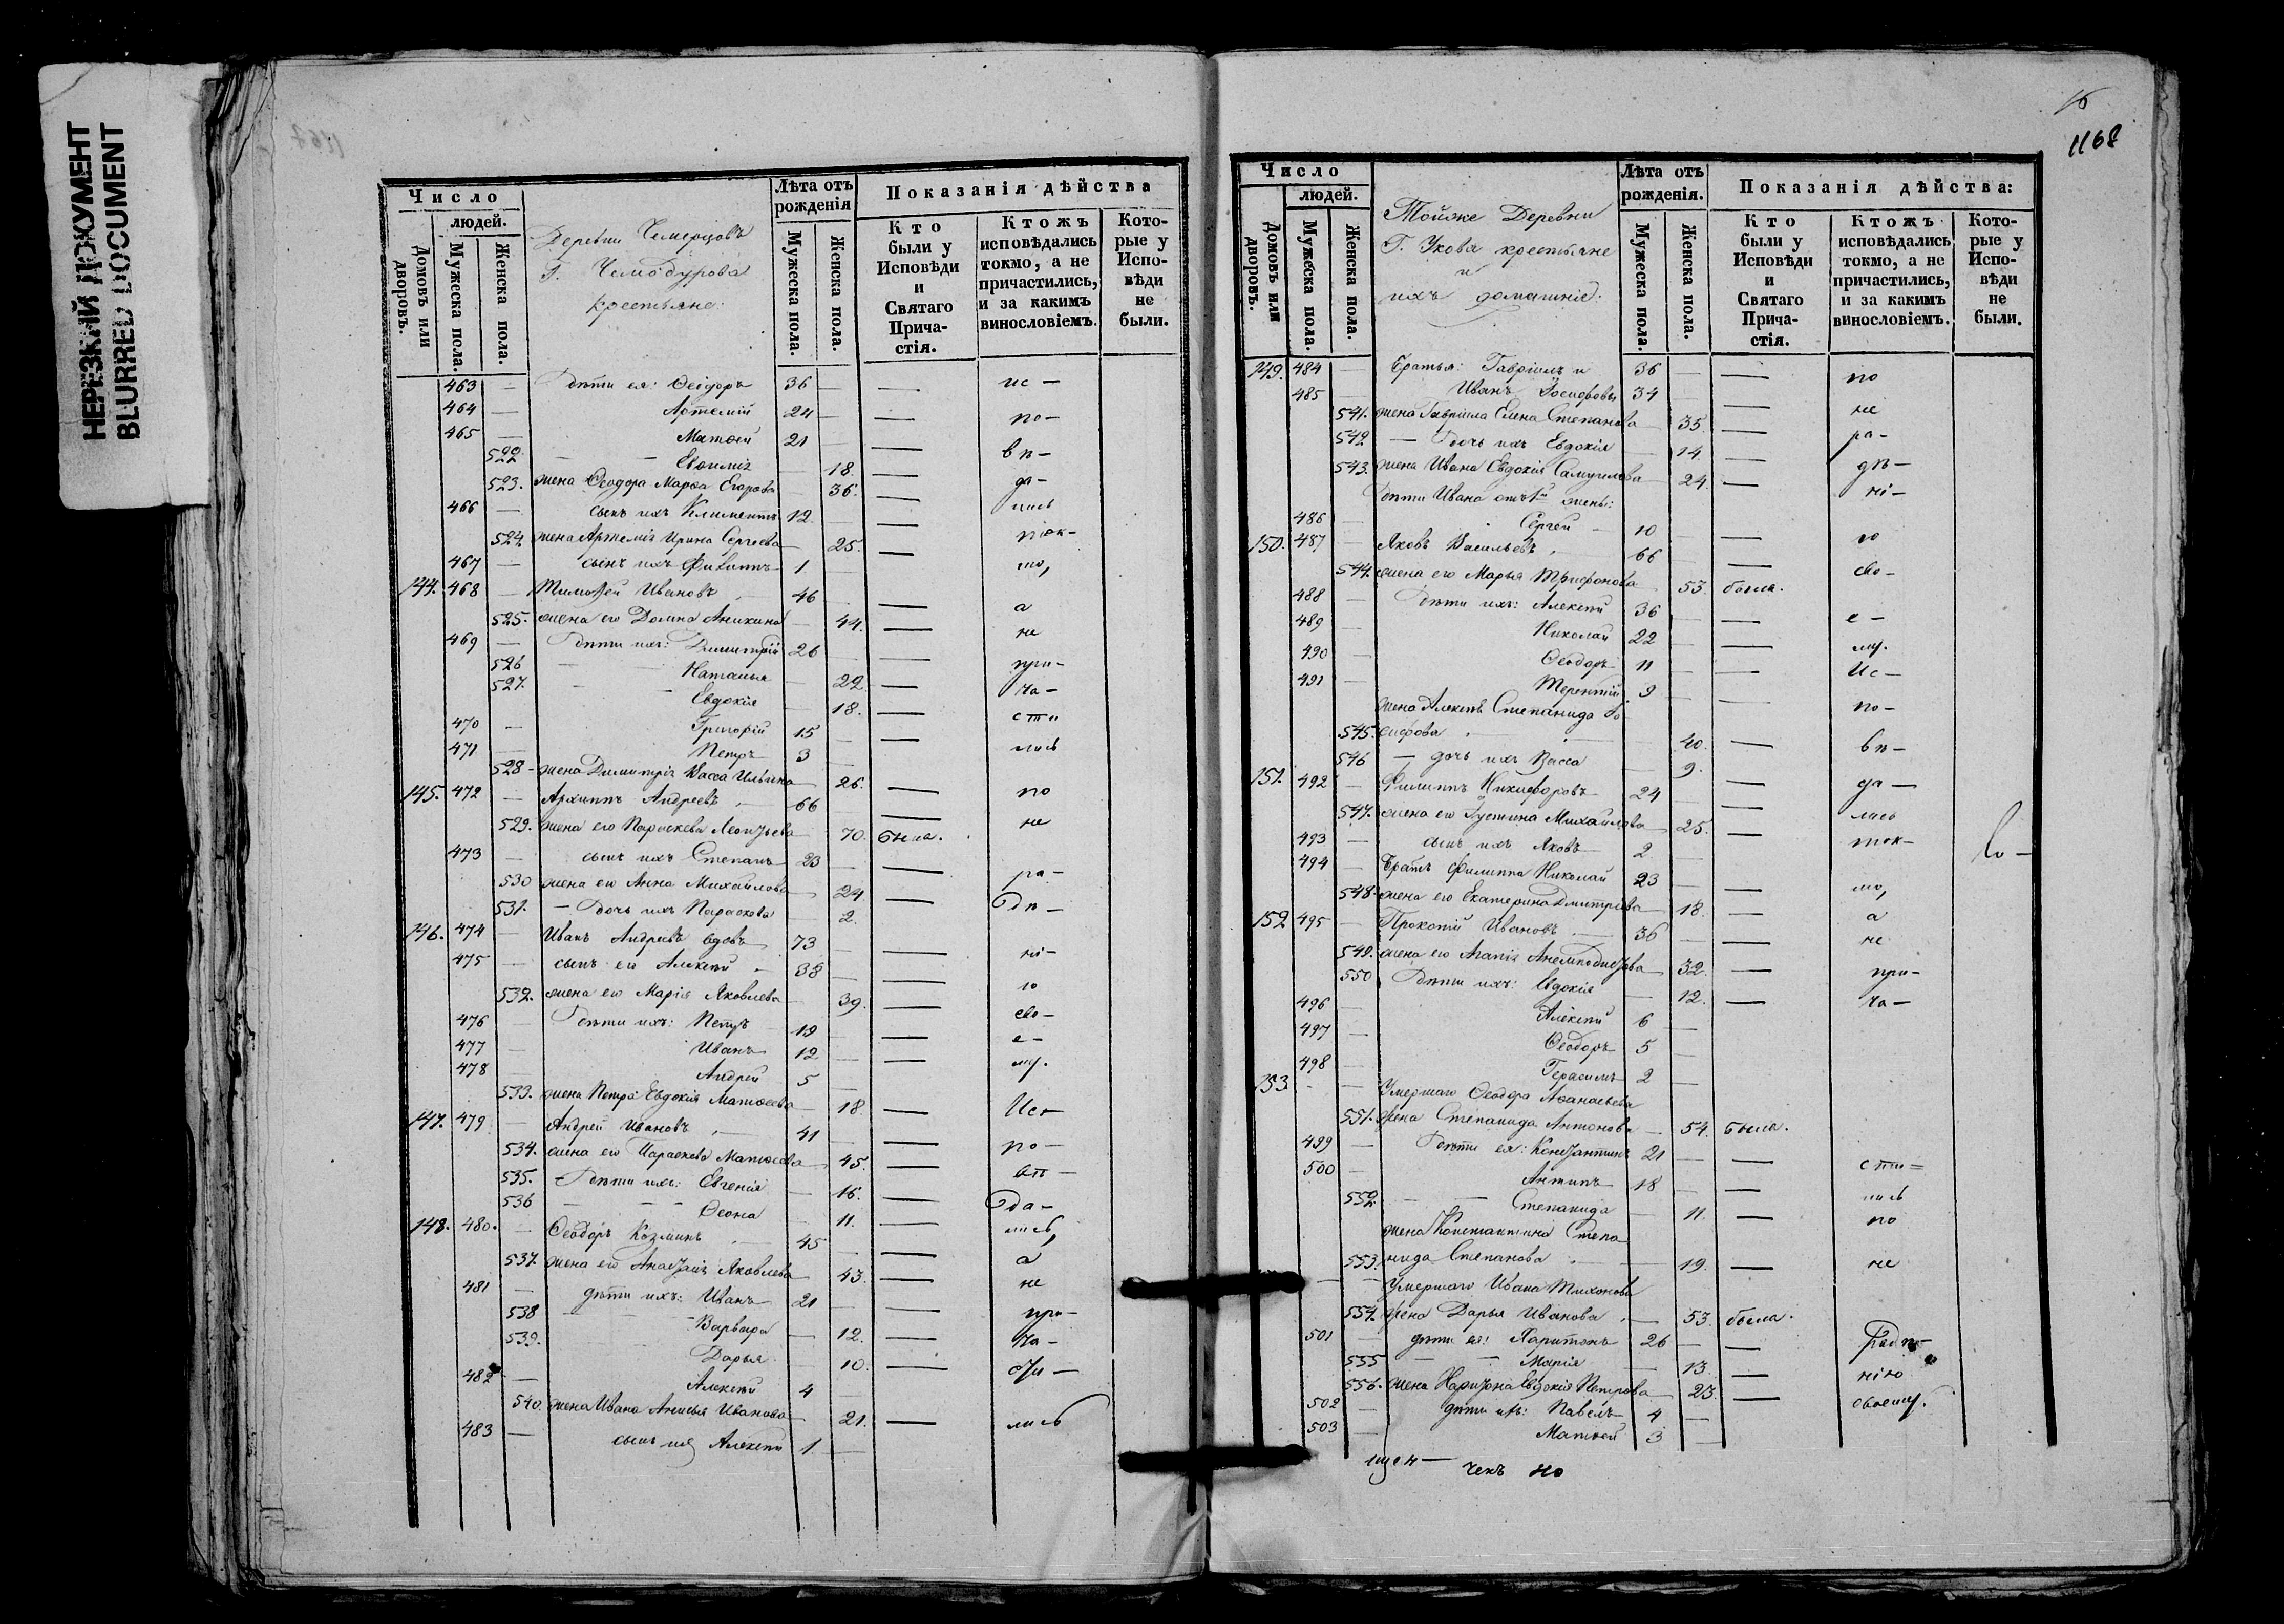 НЕРЕЗКИЙ ДОКУМЕНТ
BLURRED DOCUMENT
Число
людей.
Домовъ или дворовъ.
Мужеска пола.
Женска пола.
Деревни
Г. Чемодурова
крестьяне:
Лѣта отъ рожденія
Мужеска пола.
Женска пола.
Показанія дѣйства
Кто были у Исповѣди и Святаго Прича-стія.
Ктожъ исповѣдались токмо, а не причастились, и за какимъ винословіемъ.
Кото-рые у Испо-вѣди не были.
463 — дѣти ея: Ѳеодоръ 36 — — ис —
464 — Артемій 24 — — по —
465 — Матѳей 21 — — вѣ —
522 — Евѳимія — 18. — да —
523. жена Ѳеодора Марѳа Егорова — 36. — лись
466 — сынъ ихъ Климентъ 12 — —
524 жена Артемія Ирина Сергеева — 25. — ток-
467 — сынъ ихъ Филиппъ 1 — мо,
144. 468 — Тимоѳей Ивановъ 46 — — а
525. жена его Домна Аникина — 44. — не
469 — дѣти ихъ: Димитрій 26 — — при —
526 — Наталья — 22. — ча —
527. — Евдокія — 18. — сти
470 — Григорій 15 — — лись
471 — Петръ 3 —
528 — жена Димитрія Васса Ильина — 26. — по
145. 472 — Архиппъ Андреевъ 66 — — не
529. жена его Параскева Леонтьева 70. была.
473 — сынъ ихъ Степанъ 23 — — ра —
530 жена его Анна Михайлова — 24 — дѣ —
531. — дочь ихъ Параскева — 2.
146. 474 — Иванъ Андреевъ вдовъ 73 — — ні —
475 — сынъ его Алексѣй 38 — — ю
532. жена его Марія Яковлева — 39. — сво —
476 — дѣти ихъ: Петръ 19 — е —
477 — Иванъ 12 — — му.
478 — Андрей 5 —
533. жена Петра Евдокія Матѳеева — 18. — Ис —
147. 479 — Андрей Ивановъ 41 — — по —
534. жена его Параскева Матѳеева 45. — вѣ —
535. — дѣти ихъ: Евгенія — 16. — да —
536 — Ѳеона — 11. — лись,
148. 480. — Ѳеодоръ Козминъ 45 — — а
537. жена его Анастасія Яковлева — 43. — не
481 — дѣти ихъ: Иванъ 21 — — при —
538 — Варвара — 12. — ча —
539. — Дарья — 10. — сти —
482 — Алексѣй 4 —
540. жена Ивана Анисья Иванова — 21. — лись
483 — сынъ ихъ Алексѣй 1. —
1168
Число
людей.
Домовъ или дворовъ.
Мужеска пола.
Женска пола.
Тойже Деревни
Г. Укова крестьяне
и
ихъ домашніе:
Лѣта отъ рожденія.
Мужеска пола.
Женска пола.
Показанія дѣйства:
Кто были у Исповѣди и Святаго Прича-стія.
Ктожъ исповѣдались токмо, а не причастились, и за какимъ винословіемъ.
Кото-рые у Испо-вѣди не были.
149. 484 — Братья: Гавріилъ и 36 — — по
485 Иванъ Іосифовы 34 — — не
541. жена Гавріила Елена Степанова — 35. — ра —
542 — дочь ихъ Евдокія — 14 — дѣ —
543. жена Ивана Евдокія Самуилова — 24. — ні —
дѣти Ивана отъ 1й жены:
486 — Сергей — 10 — — ю
150. 487 — Яковъ Васильевъ 66 — — сво —
544. жена его Марья Трифонова 53. была.
488 — дѣти ихъ: Алексѣй 36 — — е —
489 — Николай 22 — — му.
490 — Ѳеодоръ 11 — — Ис —
491 — Терентій 9 —
жена Алексѣя Степанида Іо по —
545. сифова — 40. — вѣ —
546 — дочь ихъ Васса — 9. — да —
151. 492 — Филиппъ Никифоровъ 24 — — лись
547. жена его Іустина Михайлова 25. — ток —
493 — сынъ ихъ Яковъ 2 —
494 — Братъ Филиппа Николай 23 — — мо,
548. жена его Екатерина Дмитріева 18. — а
152 495 — Прокопій Ивановъ 36 — — не
549. жена его Агапія Анемподистова 32. — при —
550 дѣти ихъ: Евдокія — 12. — ча —
496 — Алексѣй 6 —
497 — Ѳеодоръ 5 —
498 — Герасимъ 2 —
153 — — Умершаго Ѳеодора Аѳанасьева
551. жена Степанида Антонова — 54. была.
499 — дѣти ея: Константинъ 21 — — сти —
500 — Антипъ 18 — — лись
552. — — Степанида — 11. — по
жена Константина Степа
553. нида Степанова — 19. — не
— — Умершаго Ивана Тихонова
554. жена Дарья Иванова — 53. была.
501 — дѣти ея: Харитонъ 26 — — радѣ —
555 — — Марія — 13. — нію
556. жена Харитона Евдокія Петрова — 23. — своему.
502 — дѣти ихъ: Павелъ 4 —
503 — Матѳей 3 —